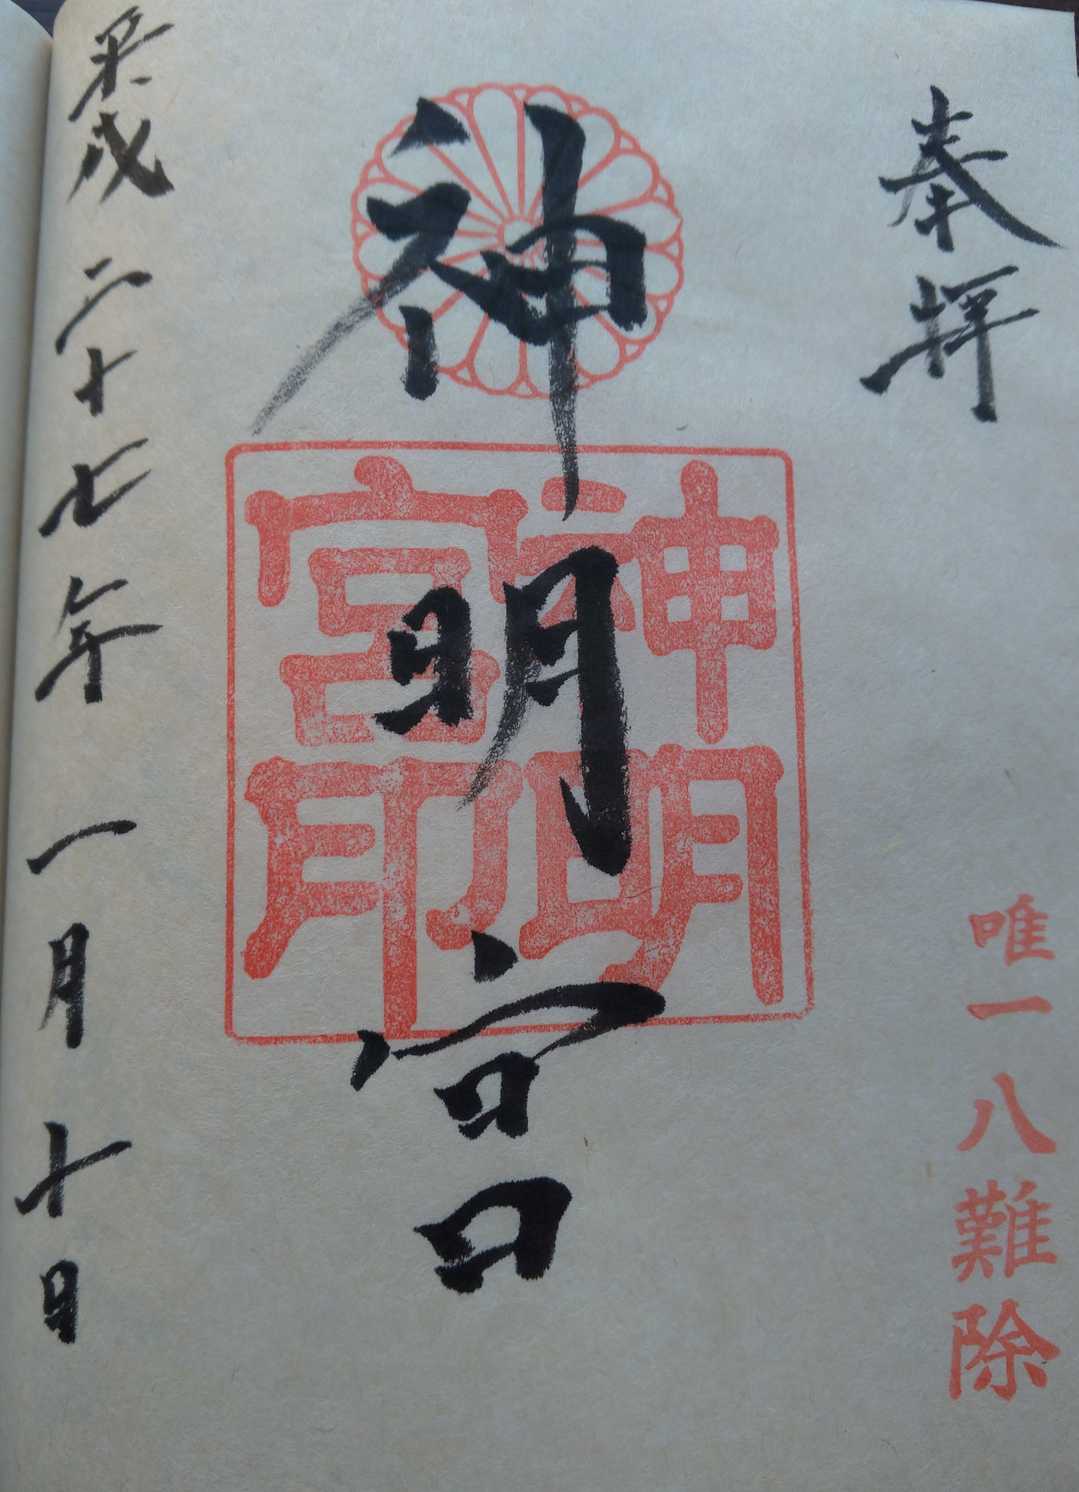 奉拝
唯一八難除
神明宮
神明宮印
平成二十七年一月十日